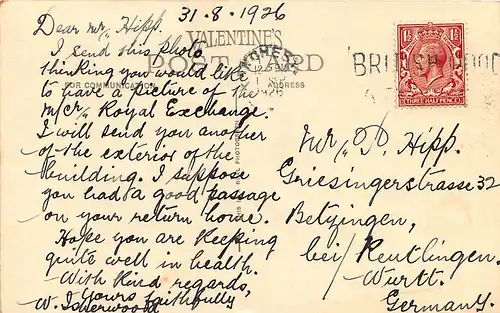 31-8-1926
Dear Mr Hipp.
I send this photo
thinking you would like
to have a picture of the
M/cr Royal Exchange.
I will send you another
of the exterior of the
building. I suppose
you had a good passage
on your return home.
Hope you are keeping
quite well in health.
With kind regards,
Yours faithfully
W. Isherwood
VALENTINE'S
POST CARD
FOR COMMUNICATION
ADDRESS
12 15 AM
1 SEP
1926
BRITISH GOOD
1½ 1½
THREE HALF PENCE
Mr P. Hipp.
Griesingerstrasse 32
Betzingen,
bei/Reutlingen.
Wurtt.
Germany.